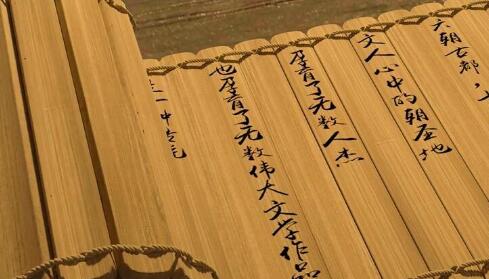 六朝古都
文人心中的朝圣地
孕育了无数人杰
也孕育了无数伟大文学作品